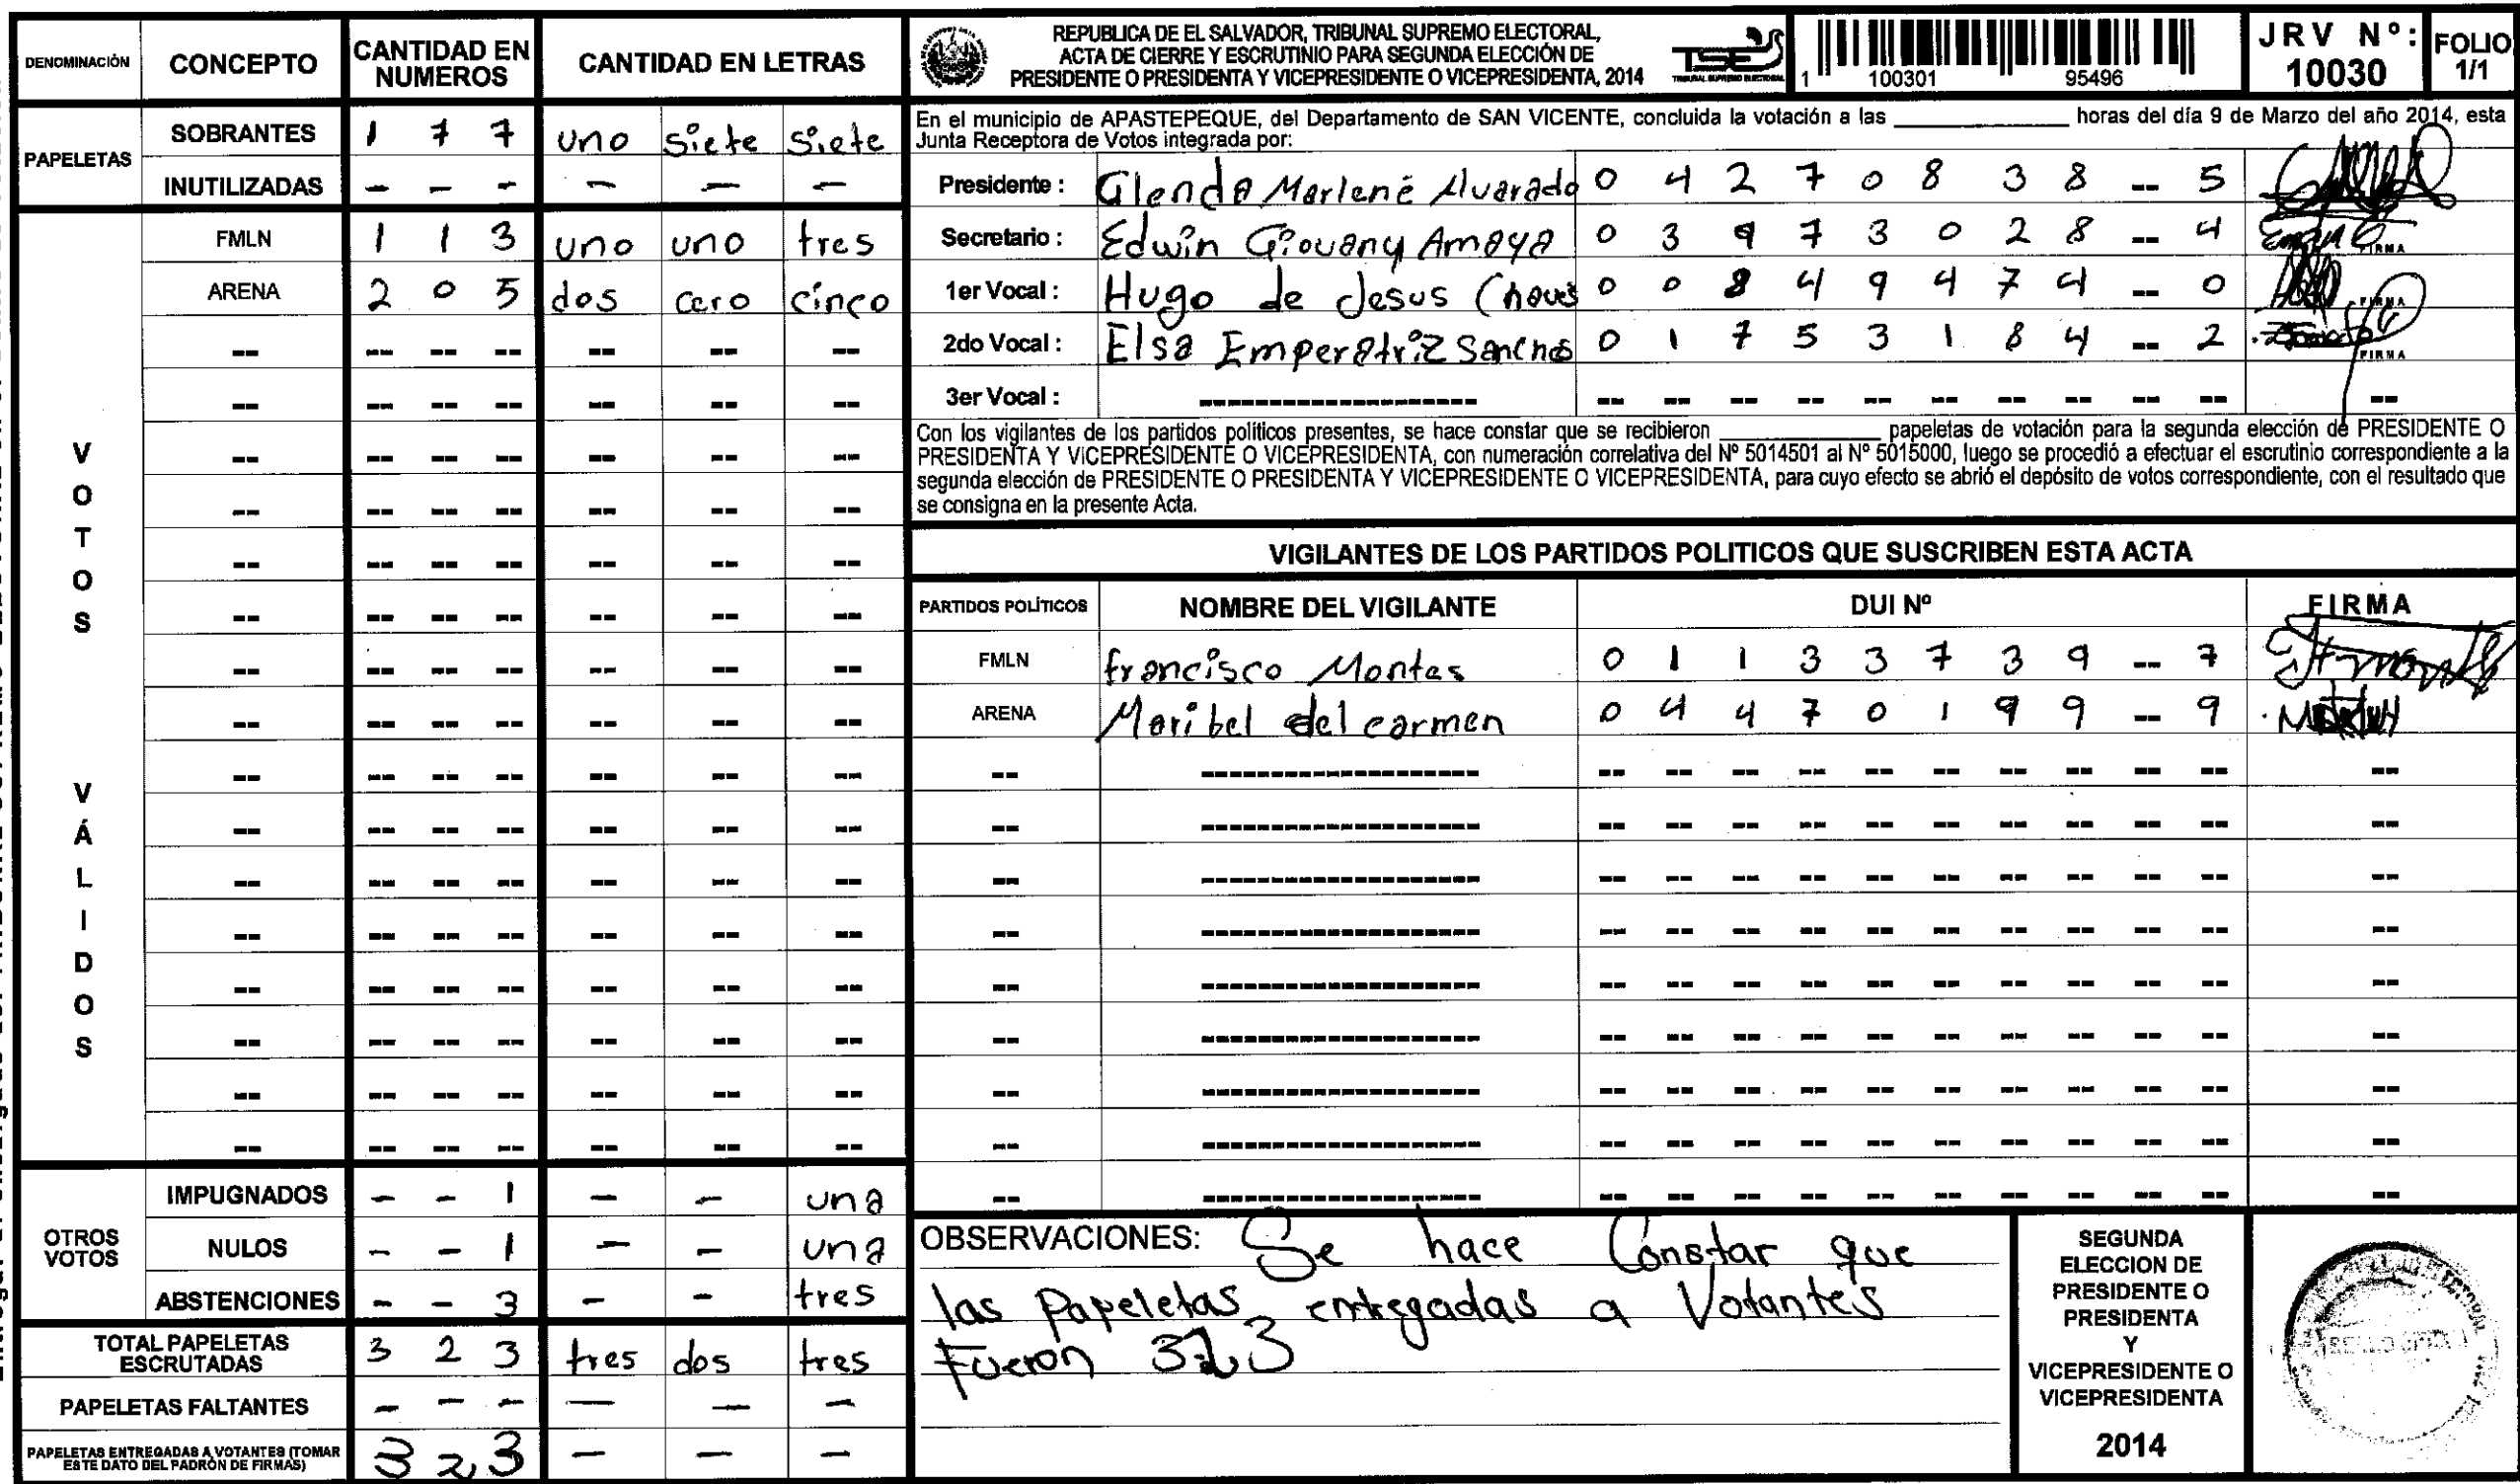 DENOMINACIÓN CONCEPTO CANTIDAD EN NUMEROS CANTIDAD EN LETRAS
PAPELETAS
SOBRANTES 1 7 7 uno siete siete
INUTILIZADAS - - - - - -
VOTOS VÁLIDOS
FMLN 1 1 3 uno uno tres
ARENA 2 0 5 dos cero cinco
OTROS VOTOS
IMPUGNADOS - - 1 - - una
NULOS - - 1 - - una
ABSTENCIONES - - 3 - - tres
TOTAL PAPELETAS ESCRUTADAS 3 2 3 tres dos tres
PAPELETAS FALTANTES - - - - - -
PAPELETAS ENTREGADAS A VOTANTES (TOMAR ESTE DATO DEL PADRÓN DE FIRMAS) 3 2 3 - - -
REPUBLICA DE EL SALVADOR, TRIBUNAL SUPREMO ELECTORAL,
ACTA DE CIERRE Y ESCRUTINIO PARA SEGUNDA ELECCIÓN DE
PRESIDENTE O PRESIDENTA Y VICEPRESIDENTE O VICEPRESIDENTA, 2014
TSE
TRIBUNAL SUPREMO ELECTORAL
1 100301 95496
JRV Nº: 10030
FOLIO 1/1
En el municipio de APASTEPEQUE, del Departamento de SAN VICENTE, concluida la votación a las ____ horas del día 9 de Marzo del año 2014, esta
Junta Receptora de Votos integrada por:
Presidente : Glenda Marlené Alvarado 0 4 2 7 0 8 3 8 -- 5
Secretario : Edwin Giovany Amaya 0 3 9 7 3 0 2 8 -- 4 FIRMA
1er Vocal : Hugo de Jesus Chaves 0 0 8 4 9 4 7 4 -- 0 FIRMA
2do Vocal : Elsa Emperatriz Sanches 0 1 7 5 3 1 8 4 -- 2 FIRMA
3er Vocal :
Con los vigilantes de los partidos politicos presentes, se hace constar que se recibieron ____ papeletas de votación para la segunda elección de PRESIDENTE O
PRESIDENTA Y VICEPRESIDENTE O VICEPRESIDENTA, con numeración correlativa del Nº 5014501 al Nº 5015000, luego se procedió a efectuar el escrutinio correspondiente a la
segunda elección de PRESIDENTE O PRESIDENTA Y VICEPRESIDENTE O VICEPRESIDENTA, para cuyo efecto se abrió el depósito de votos correspondiente, con el resultado que
se consigna en la presente Acta.
VIGILANTES DE LOS PARTIDOS POLITICOS QUE SUSCRIBEN ESTA ACTA
PARTIDOS POLÍTICOS NOMBRE DEL VIGILANTE DUI Nº FIRMA
FMLN francisco Montes 0 1 1 3 3 7 3 9 -- 7
ARENA Maribel del carmen 0 4 4 7 0 1 9 9 -- 9
OBSERVACIONES: Se hace Constar que
las Papeletas entregadas a Votantes
Fueron 323
SEGUNDA
ELECCION DE
PRESIDENTE O
PRESIDENTA
Y
VICEPRESIDENTE O
VICEPRESIDENTA
2014